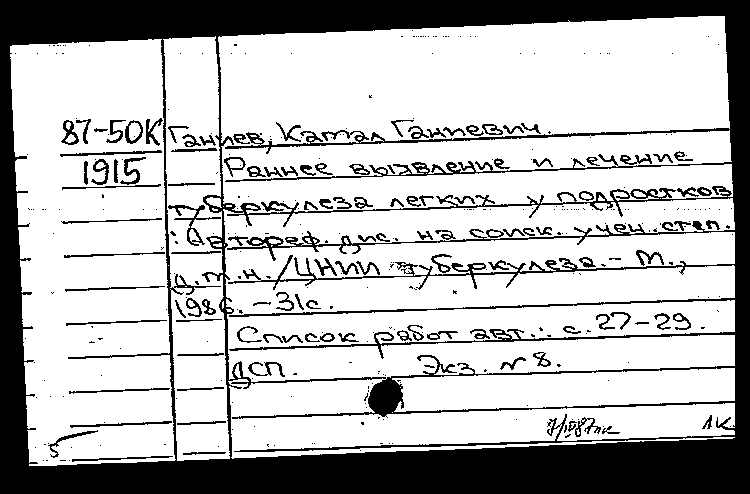 87-50К Ганиев, Камал Ганиевич.
1915 Раннее выявление и лечение
туберкулеза легких у подростков
: Автореф. дис. на соиск. учен. степ.
д.м.н. / ЦНИИ туберкулеза. - М.,
1986. - 31с.
Список работ авт.: с. 27-29.
ДСП. Экз. №8.
1К
5